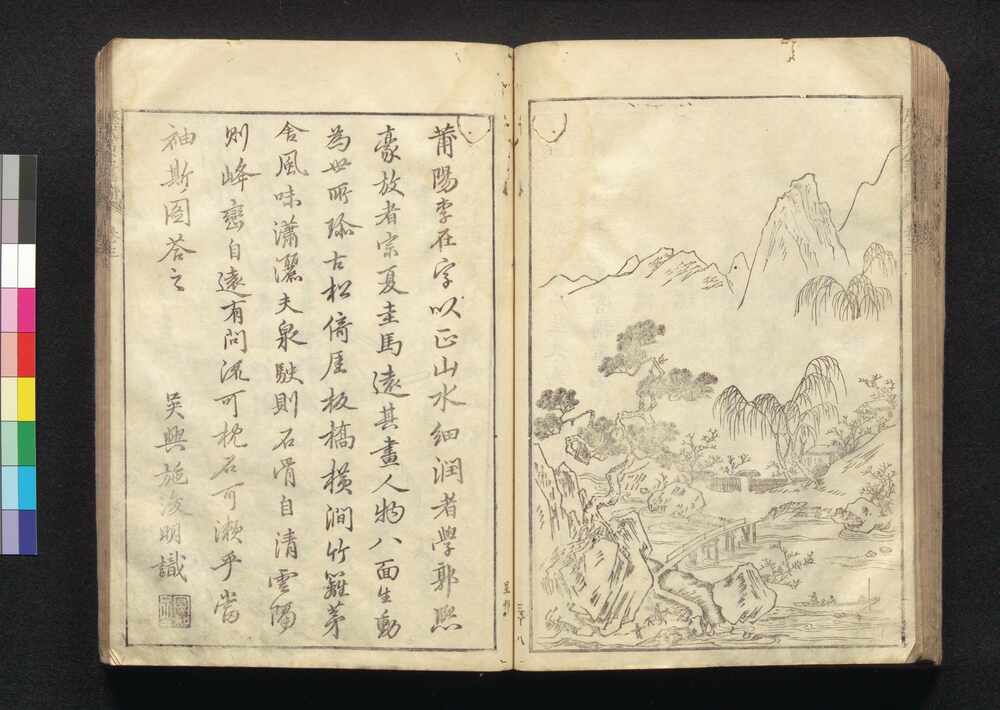 莆陽李在字以正山水細潤者學郭熙
豪放者宗夏圭馬遠其畫人物八面生動
為世所珍古松倚厓板橋橫澗竹籬茅
舍風味瀟灑夫泉駛則石骨自清雲陽
則峰巒自遠有問流可枕石可漱乎當
袖斯圖荅之
吳興施浚明識